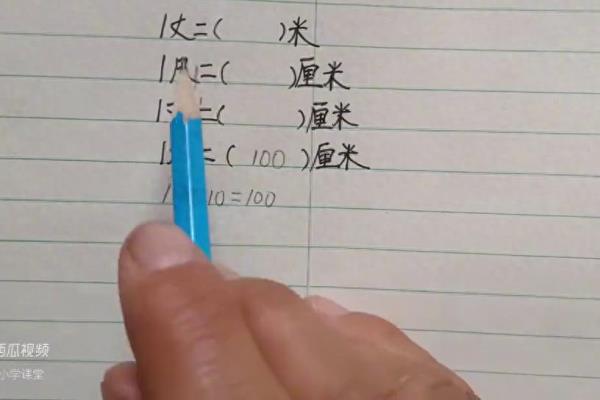 1丈=( )米
1尺=( )厘米
1 =( )厘米
1 =( 100 )厘米
10=100
西瓜视频
小学课堂